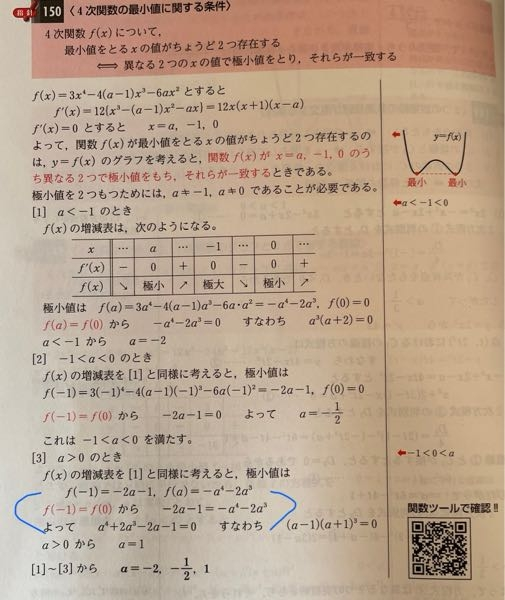 指針 150 〈4次関数の最小値に関する条件〉
4次関数 f(x) について,
最小値をとる x の値がちょうど2つ存在する
⟺ 異なる2つの x の値で極小値をとり, それらが一致する
f(x)=3x⁴-4(a-1)x³-6ax² とすると
f'(x)=12{x³-(a-1)x²-ax}=12x(x+1)(x-a)
f'(x)=0 とすると x=a, -1, 0
よって, 関数 f(x) が最小値をとる x の値がちょうど2つ存在するの
は, y=f(x) のグラフを考えると, 関数 f(x) が x=a, -1, 0 のう
ち異なる2つで極小値をもち, それらが一致するときである。
y=f(x)
最小 最小
極小値を2つもつためには, a≠-1, a≠0 であることが必要である。
[1] a<-1 のとき
←a<-1<0
f(x) の増減表は, 次のようになる。
x … a … -1 … 0 …
f'(x) - 0 + 0 - 0 +
f(x) ↘ 極小 ↗ 極大 ↘ 極小 ↗
極小値は f(a)=3a⁴-4(a-1)a³-6a・a²=-a⁴-2a³, f(0)=0
f(a)=f(0) から -a⁴-2a³=0 すなわち a³(a+2)=0
a<-1 から a=-2
[2] -1<a<0 のとき
f(x) の増減表を [1] と同様に考えると, 極小値は
f(-1)=3(-1)⁴-4(a-1)(-1)³-6a(-1)²=-2a-1, f(0)=0
f(-1)=f(0) から -2a-1=0 よって a=-1/2
これは -1<a<0 を満たす。
[3] a>0 のとき
←-1<0<a
f(x) の増減表を [1] と同様に考えると, 極小値は
f(-1)=-2a-1, f(a)=-a⁴-2a³
f(-1)=f(0) から -2a-1=-a⁴-2a³
よって a⁴+2a³-2a-1=0 すなわち (a-1)(a+1)³=0
a>0 から a=1
[1]~[3] から a=-2, -1/2, 1
関数ツールで確認!!